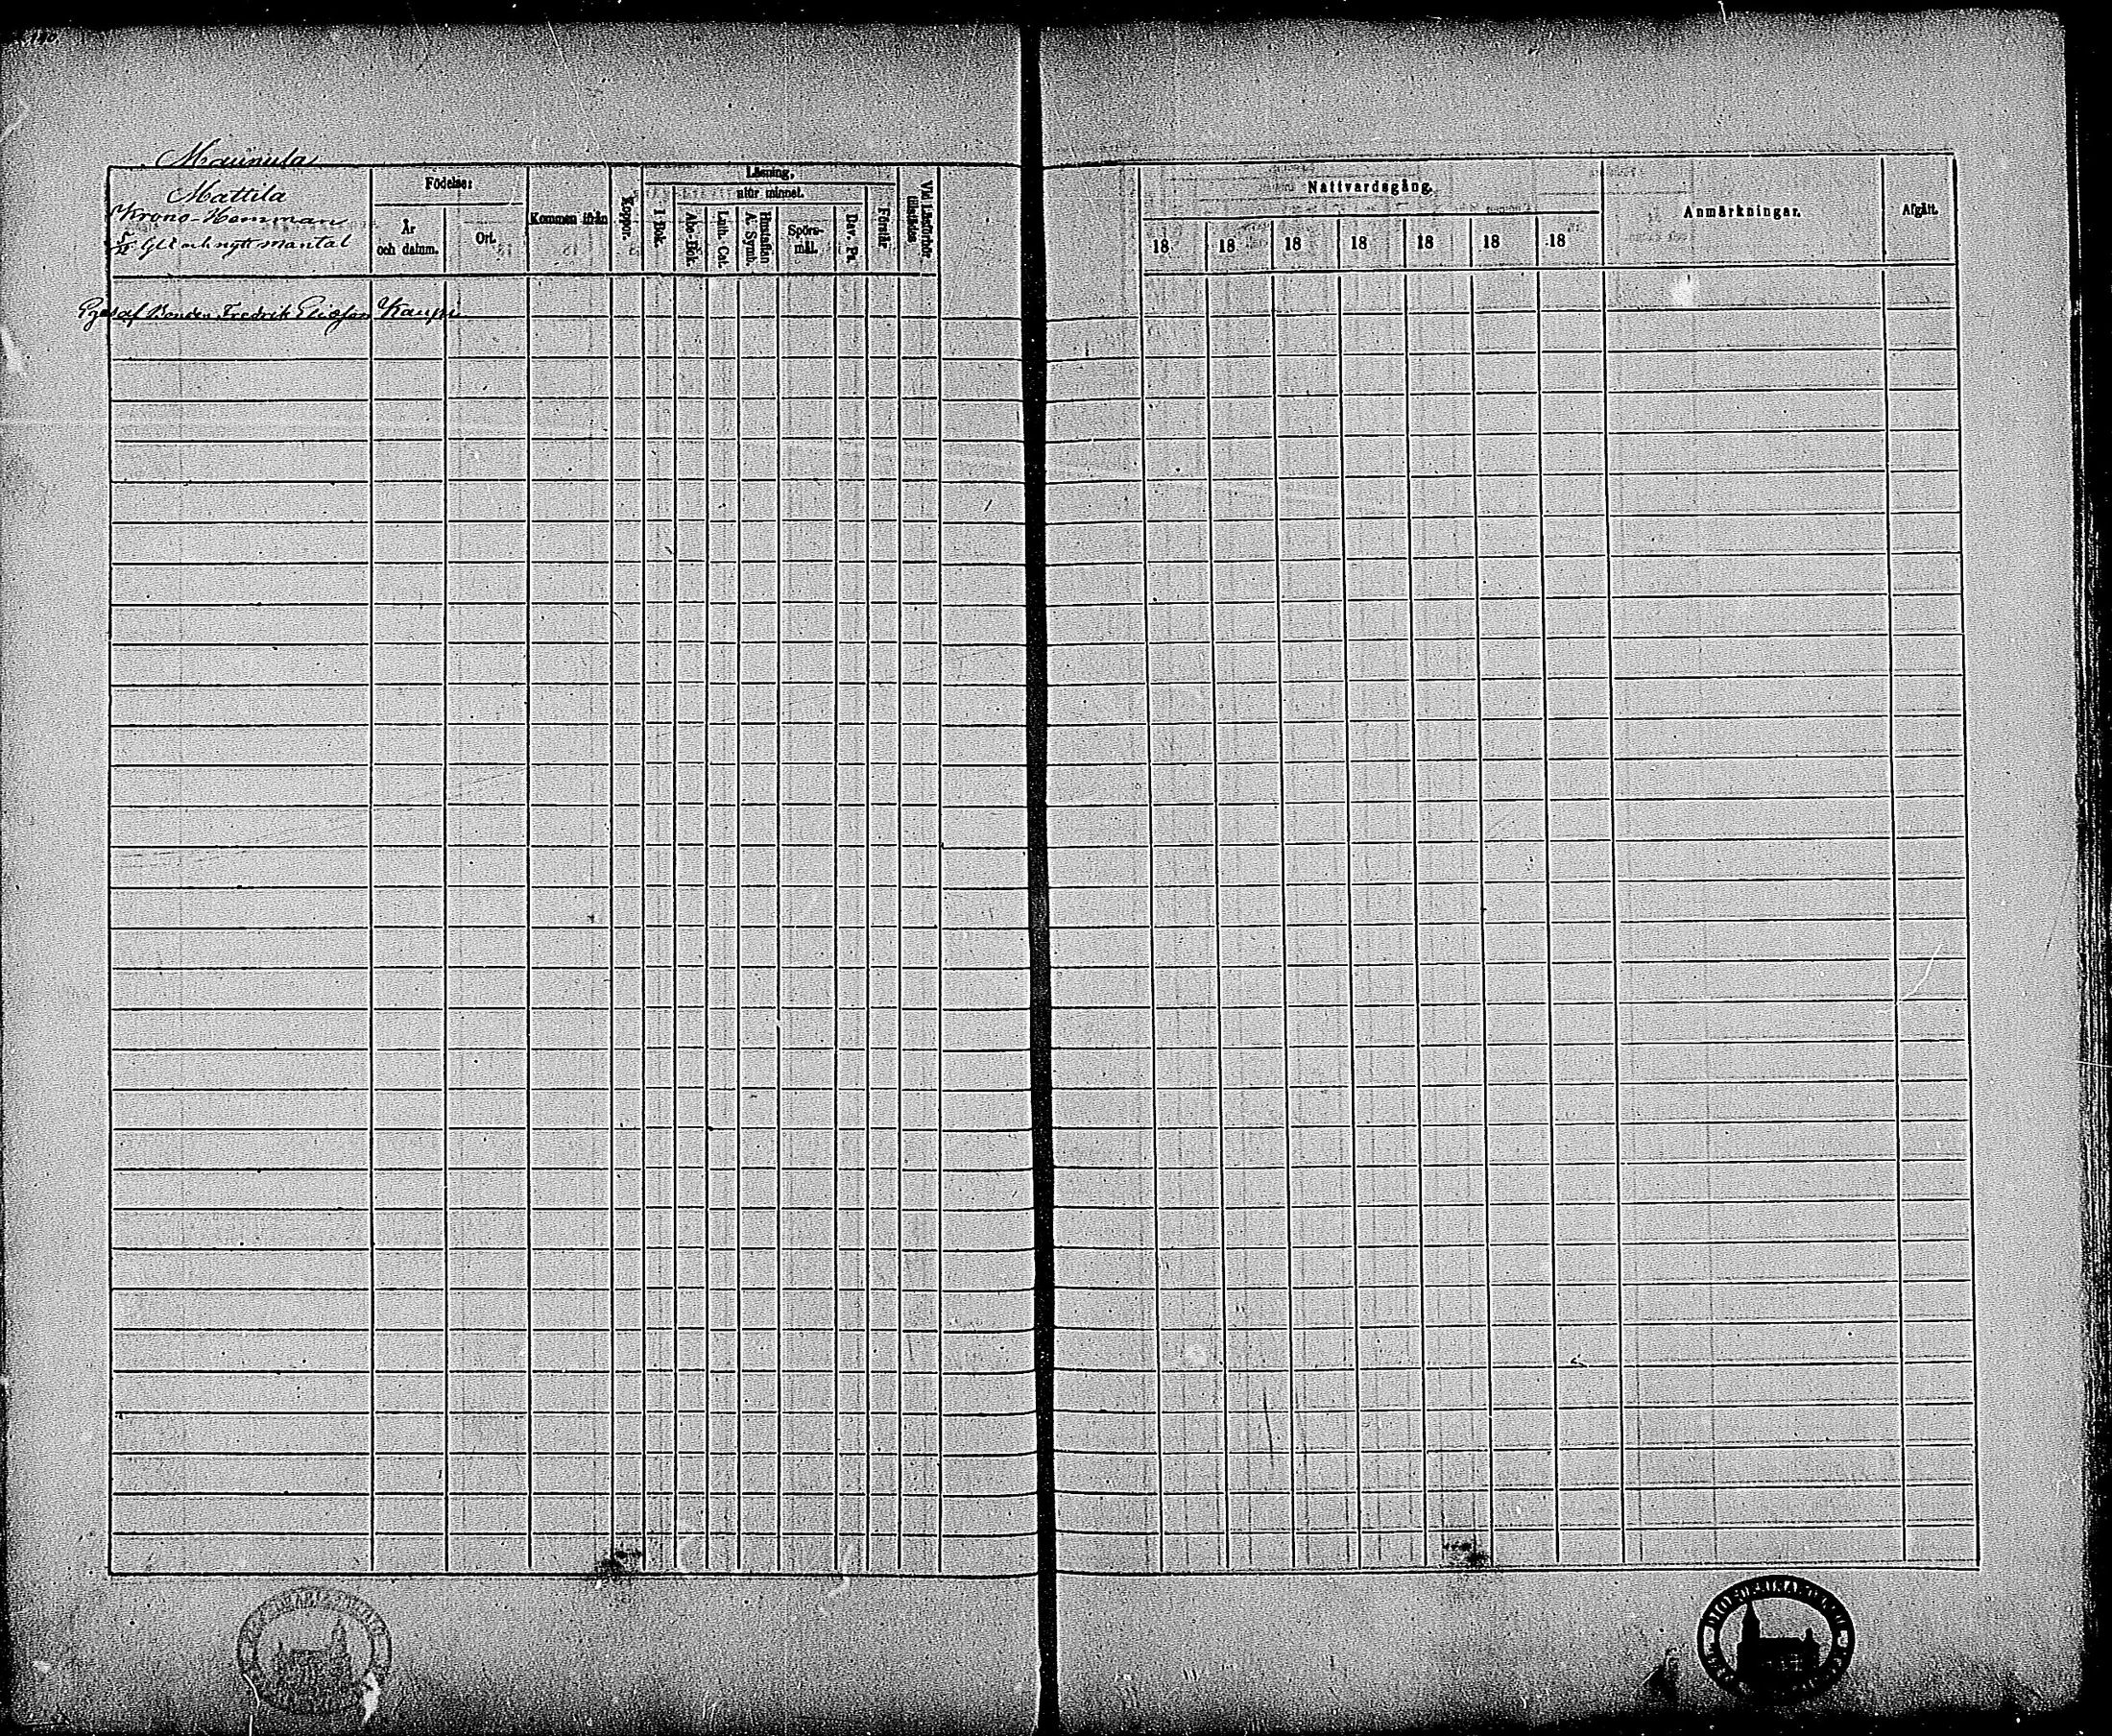 Maunula
Mattila
Krono-Hemman
och nytt mantal
Födelse:
År
och datum.
Ort.
Kommen ifrån
Koppor.
Läsning,
I Bok.
utur minnet.
Abc-Bok.
Luth. Cat.
Hustaflan
A. Symb.
Spörs-
mål.
Dav. Ps.
Förstår
Vid Läsförhör
tillstädes
Eges af Bonden Fredrik Eliasson Kauppi
Nattvardsgång.
18 18 18 18 18 18 18
Anmärkningar.
Afgått.